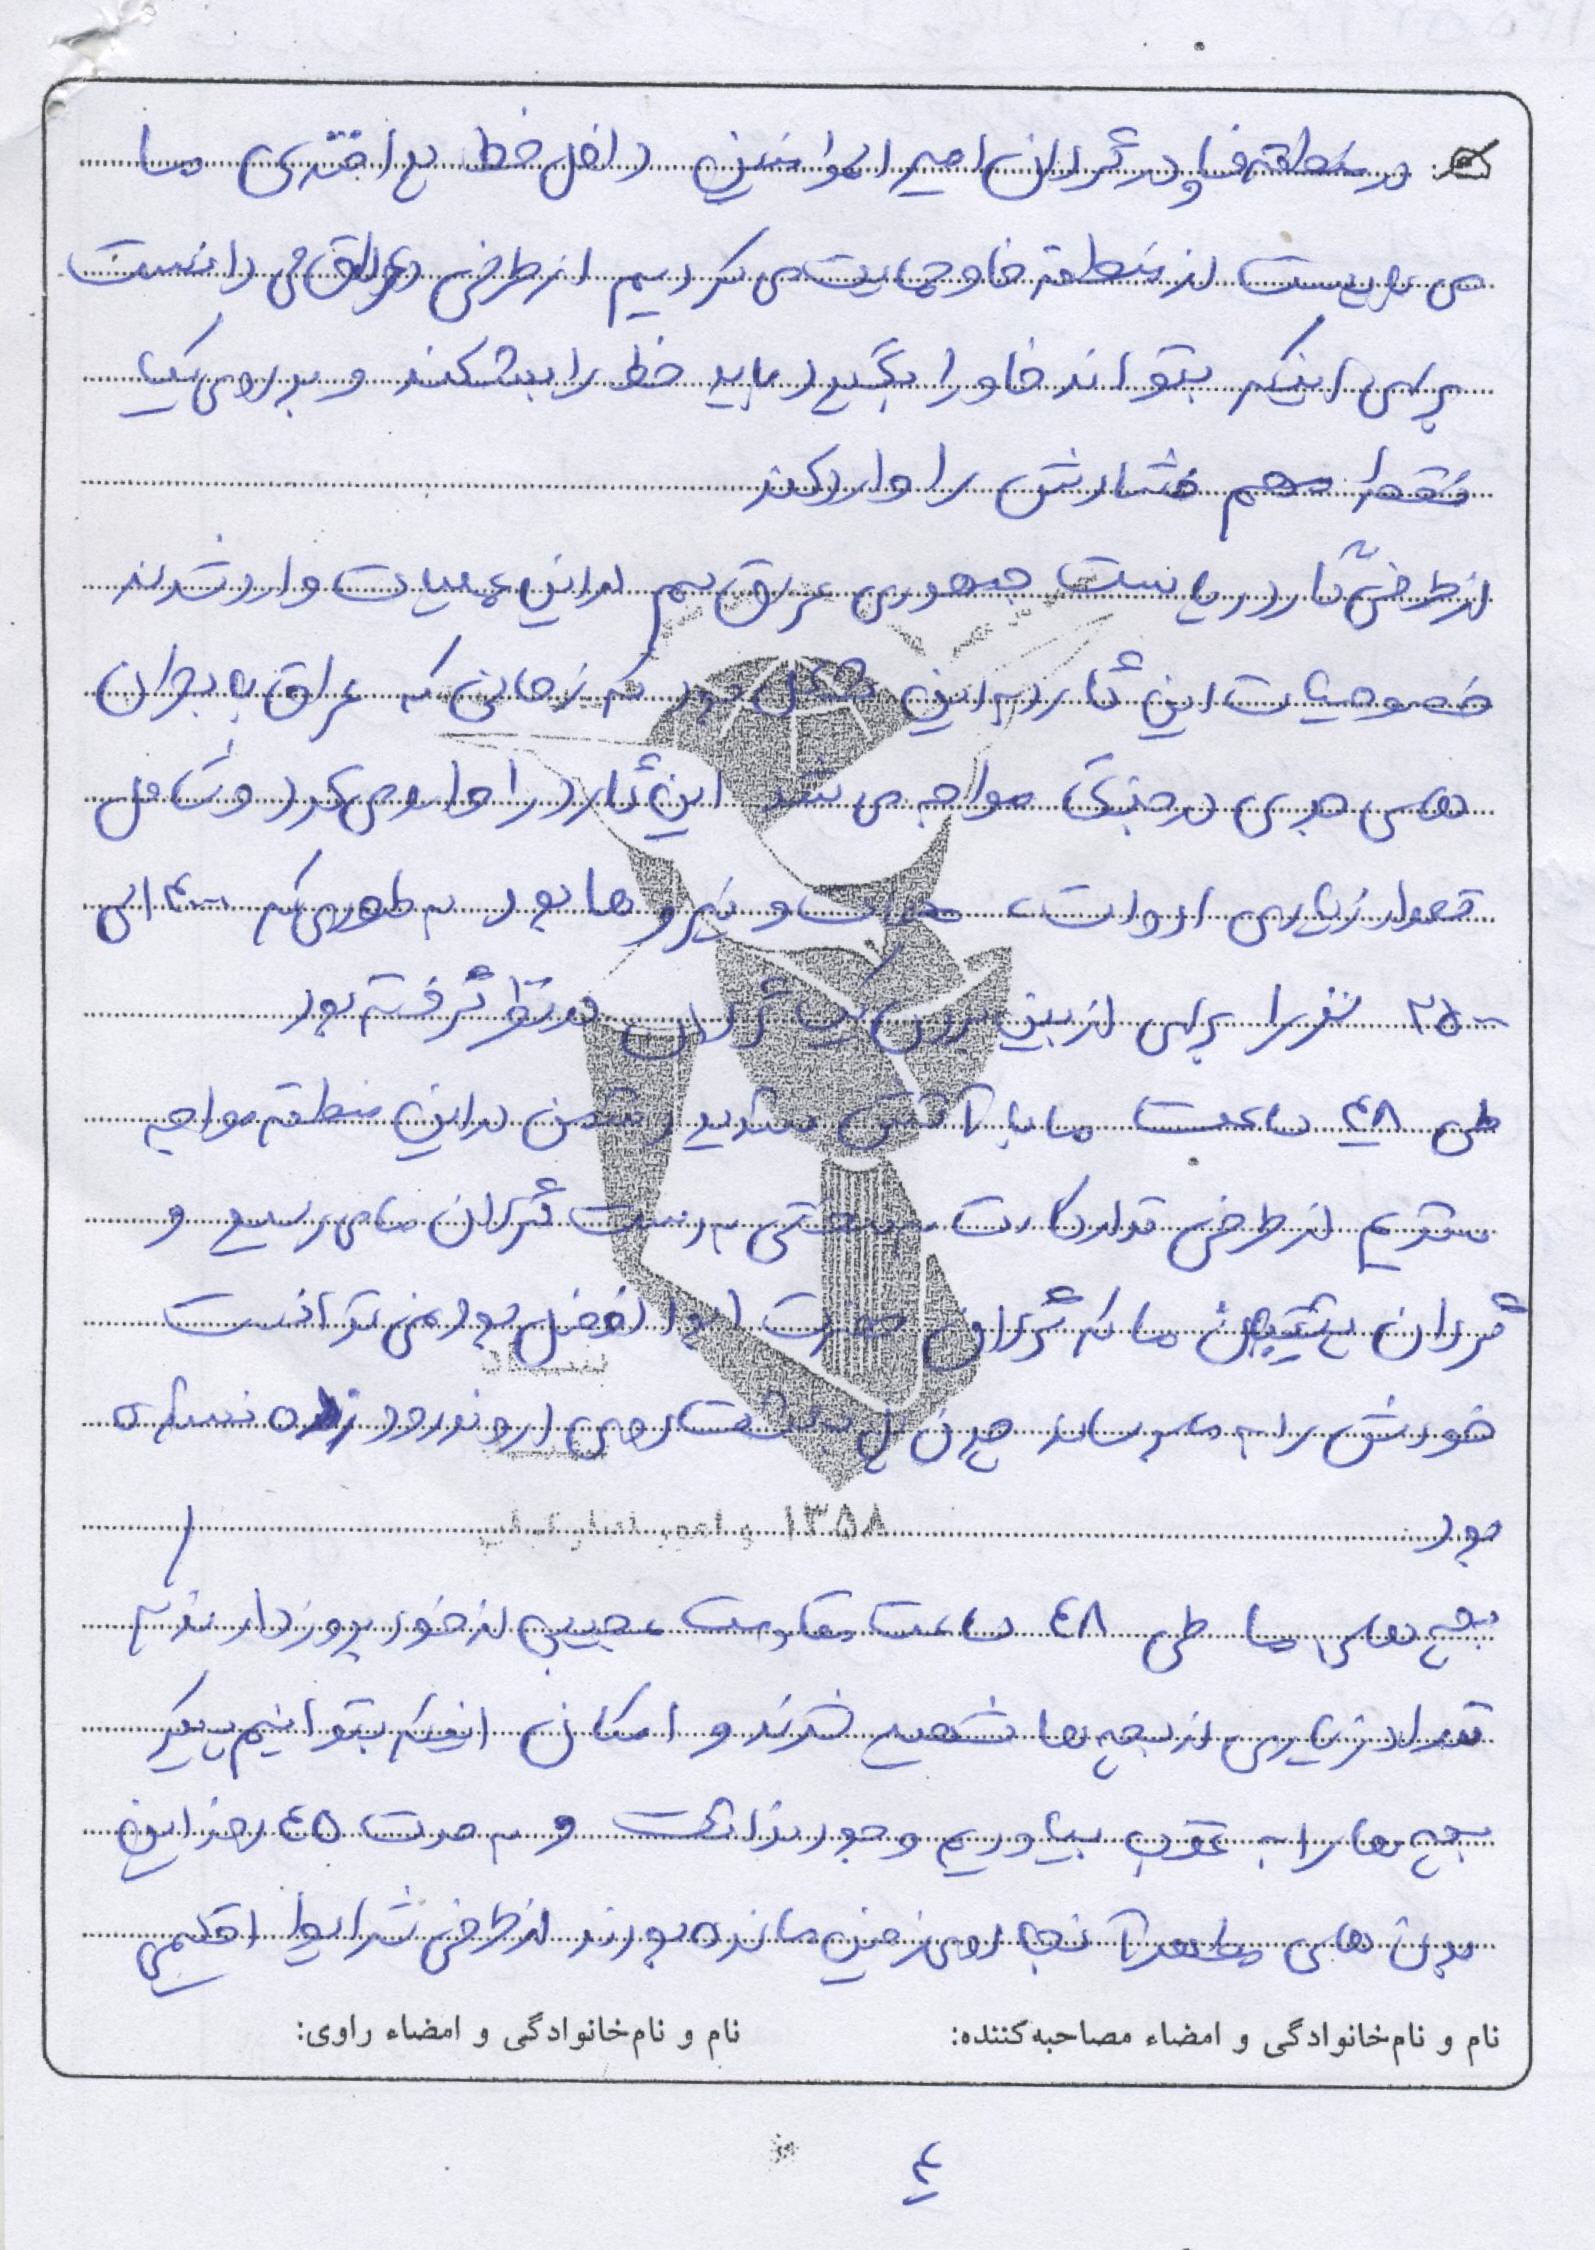 در منطقه فاو در گردان امیرالمؤمنین داخل خط پدافندی ما
می بایست از منطقه فاو حمایت می کردیم از طرفی عراق می دانست
برای اینکه بتواند فاو را بگیرد باید خط را بشکند و بر روی یک
نقطه مهم فشارش را وارد کند
از طرفی گارد ریاست جمهوری عراق هم در این عملیات وارد شدند
خصوصیات این گارد به این شکل بود که زمانی که عراق با بحران
های جدی در جنگ مواجه می شد این گارد را وارد می کرد و شامل
تعداد زیادی ادوات، و نیروها بود به طوری که
۲۵۰۰ نفر را برای از بین بردن یک گردان در نظر گرفته بود
طی ۴۸ ساعت ما با آتش شدید دشمن در این منطقه مواجه
شدیم از طرفی تدارکات به سختی به دست گردان ما می رسید و
گردان پشتیبان ما که گردان حضرت ابوالفضل بود نمی توانست
خودش را به ما برساند چون پل بعثت روی اروندرود زده نشده
بود
بچه های ما طی ۴۸ ساعت مقاومت عجیبی از خود بروز دادند که
تعداد زیادی از بچه ها شهید شدند و امکان اینکه بتوانیم پیکر
بچه ها را به عقب بیاوریم وجود نداشت و به مدت ۴۵ روز این
بدن های مطهر آنجا روی زمین مانده بودند از طرفی شرایط اقلیمی
نام و نام‌خانوادگی و امضاء مصاحبه‌کننده: نام و نام‌خانوادگی و امضاء راوی:
۴